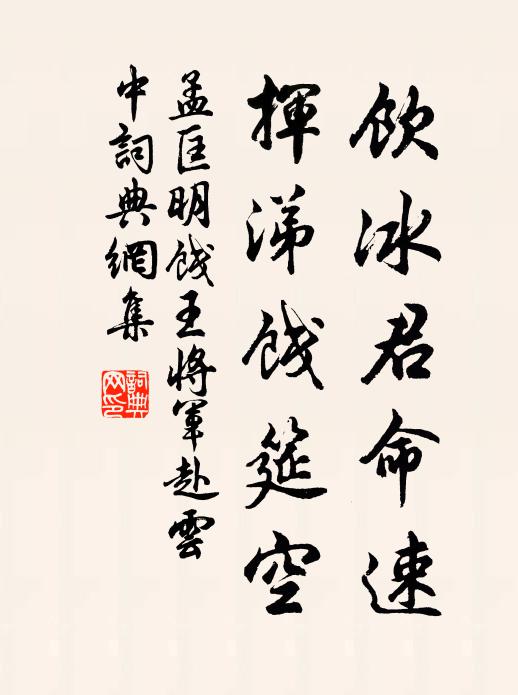 飲冰君命速
揮涕餞筵空
孟匡明餞王將軍赴雲
中詞典網集
詞典
网印